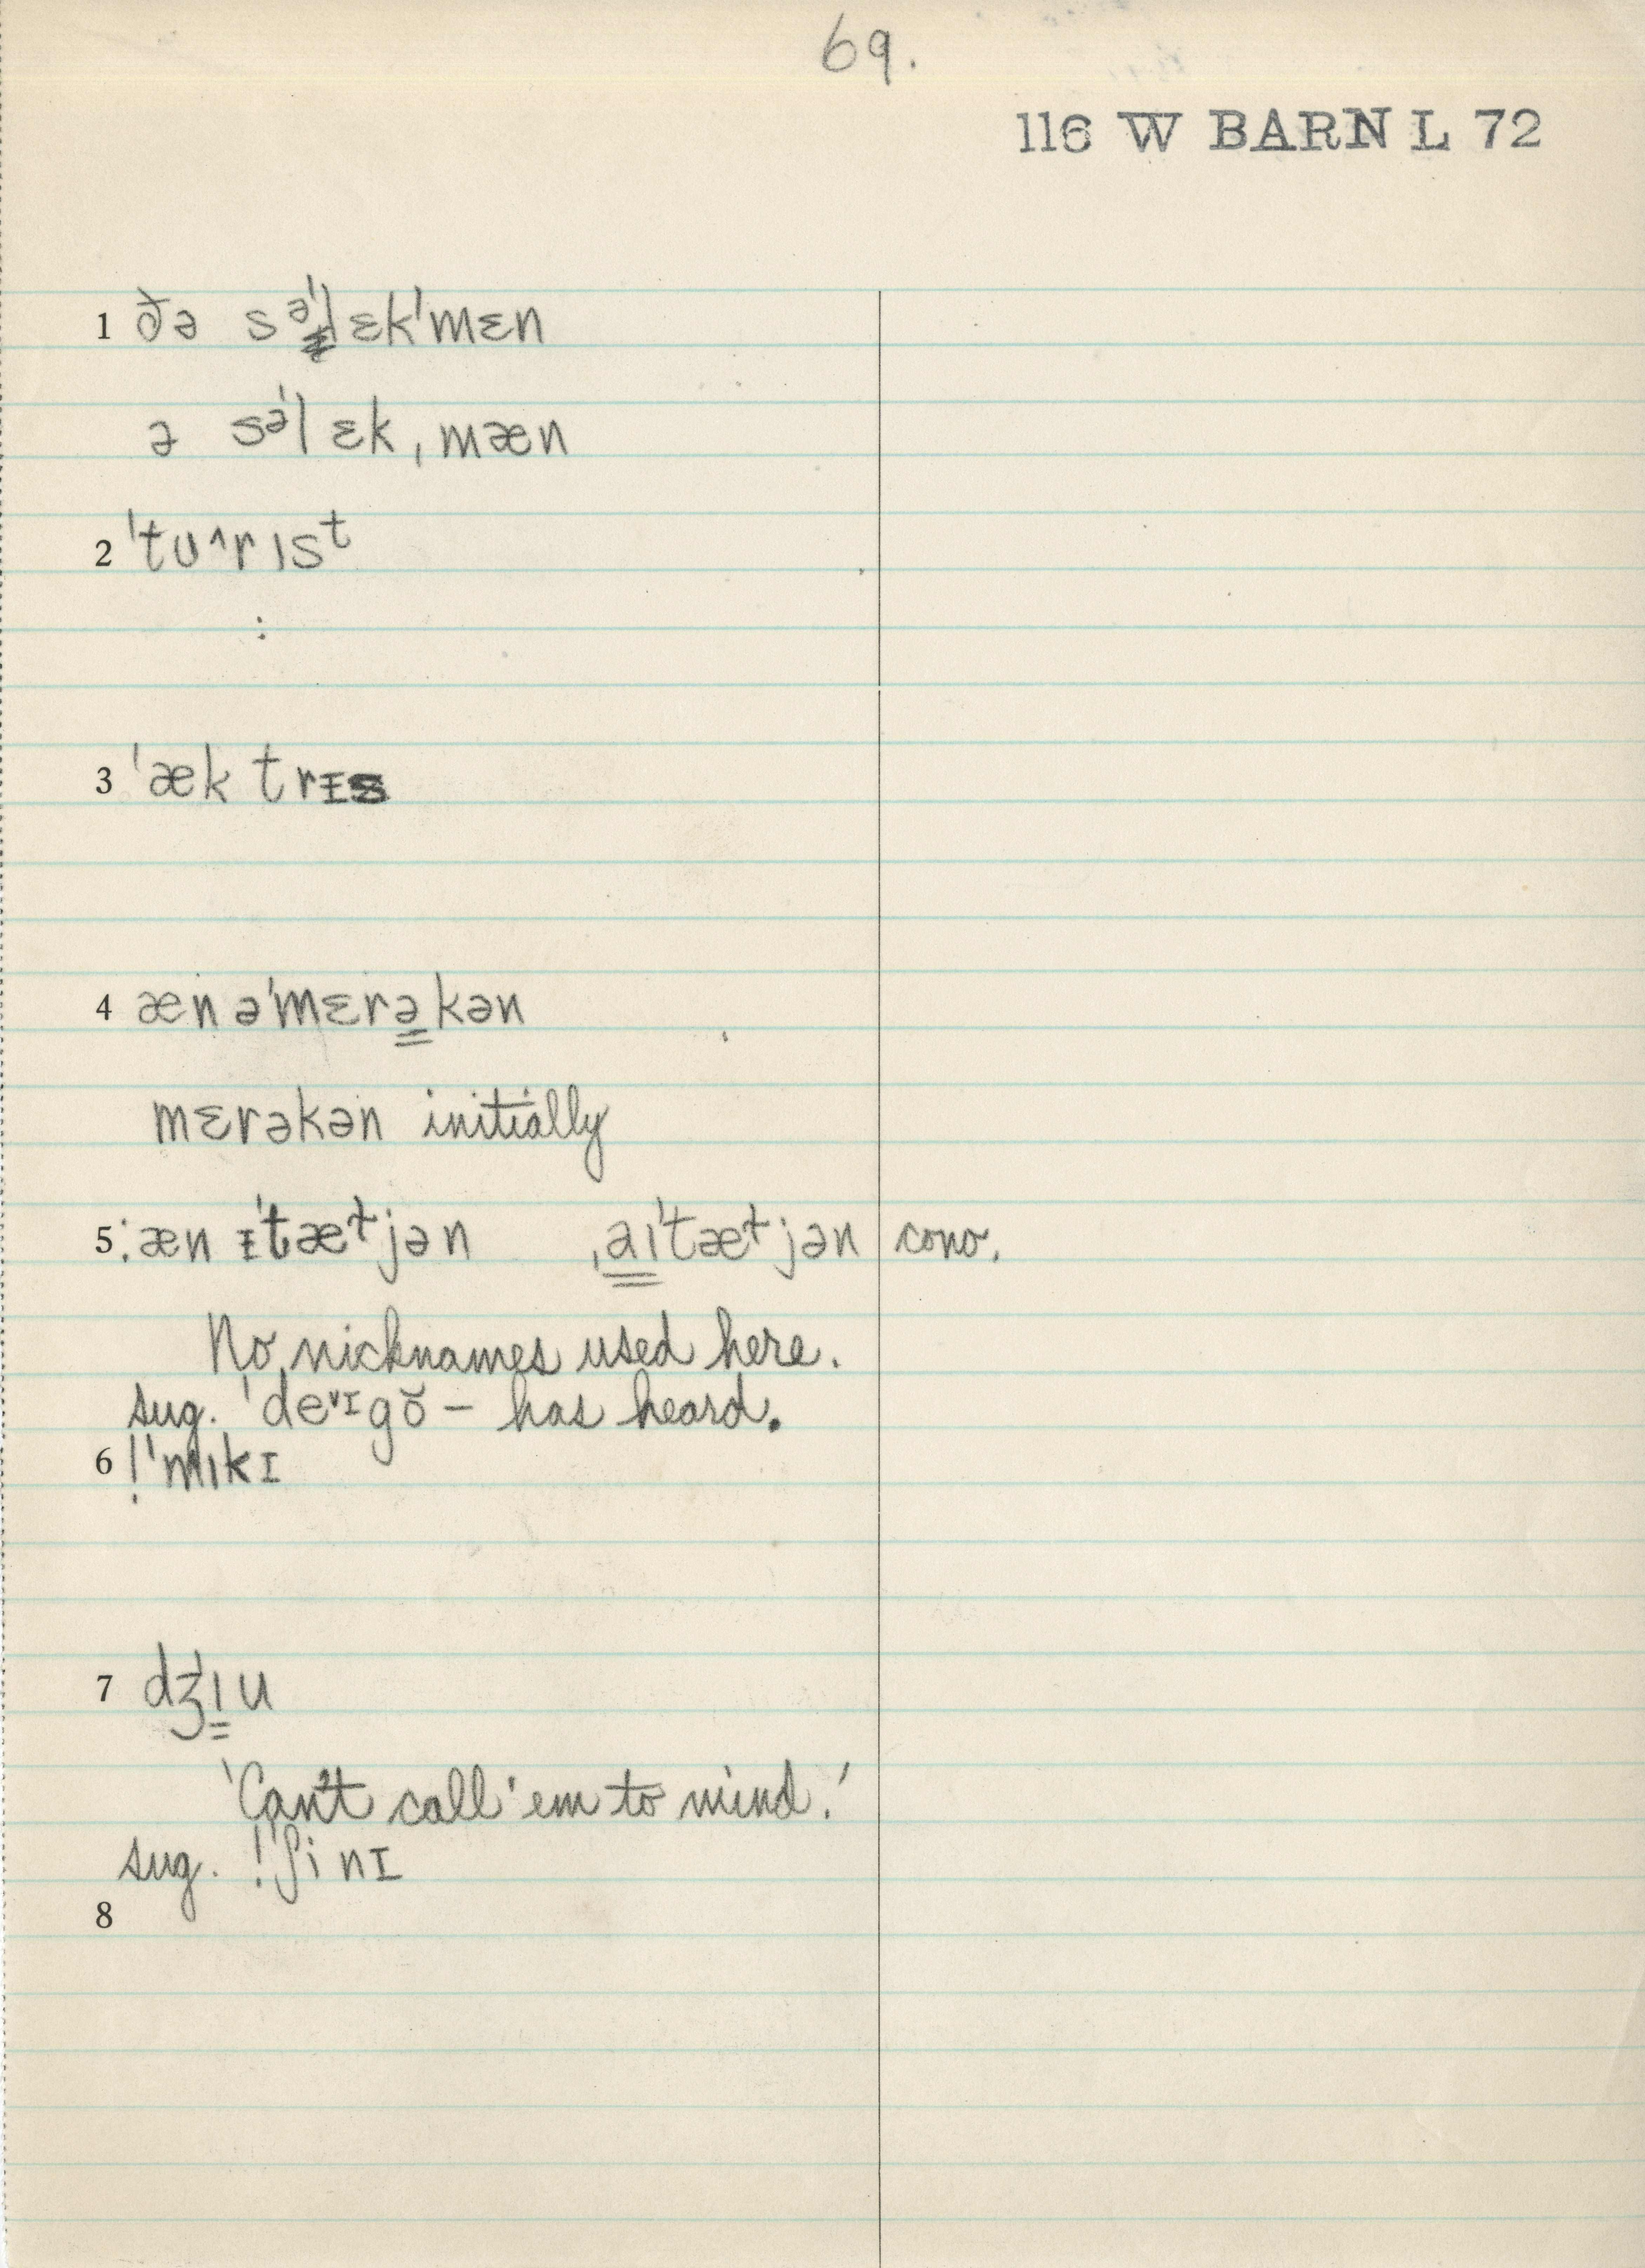 69.
116 W BARN L 72
1 ðə səˈlɛkˈmɛn
ə səˈlɛkˌmæn
2 ˈtʊ^rıst
:
3 ˈæktrɪs
4 æn əˈmɛrəkən
mɛrəkən initially
5 :æn ɪˈtæɫjən ˌaıˈtæɫjən conv.
No nicknames used here.
sug. ˈdeᵛᴵgŏ – has heard.
6 !ˈmıkɪ
7 dʒˈıu
'Can't call 'em to mind.'
sug. !ˈʃinɪ
8